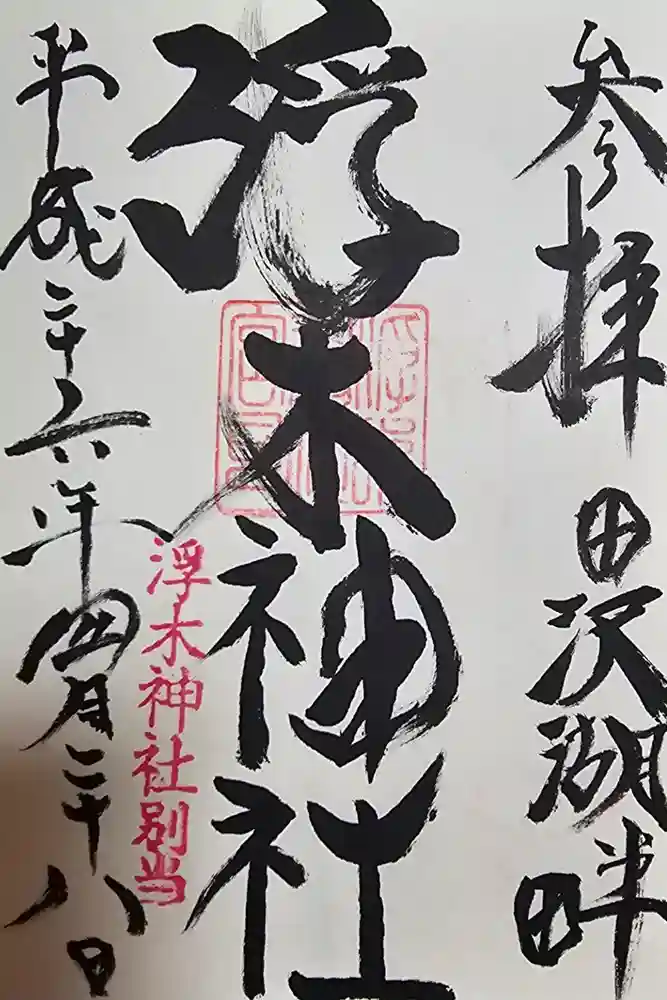 参拝
田沢湖畔
浮木神社
浮木神社別当
平成二十六年四月二十八日